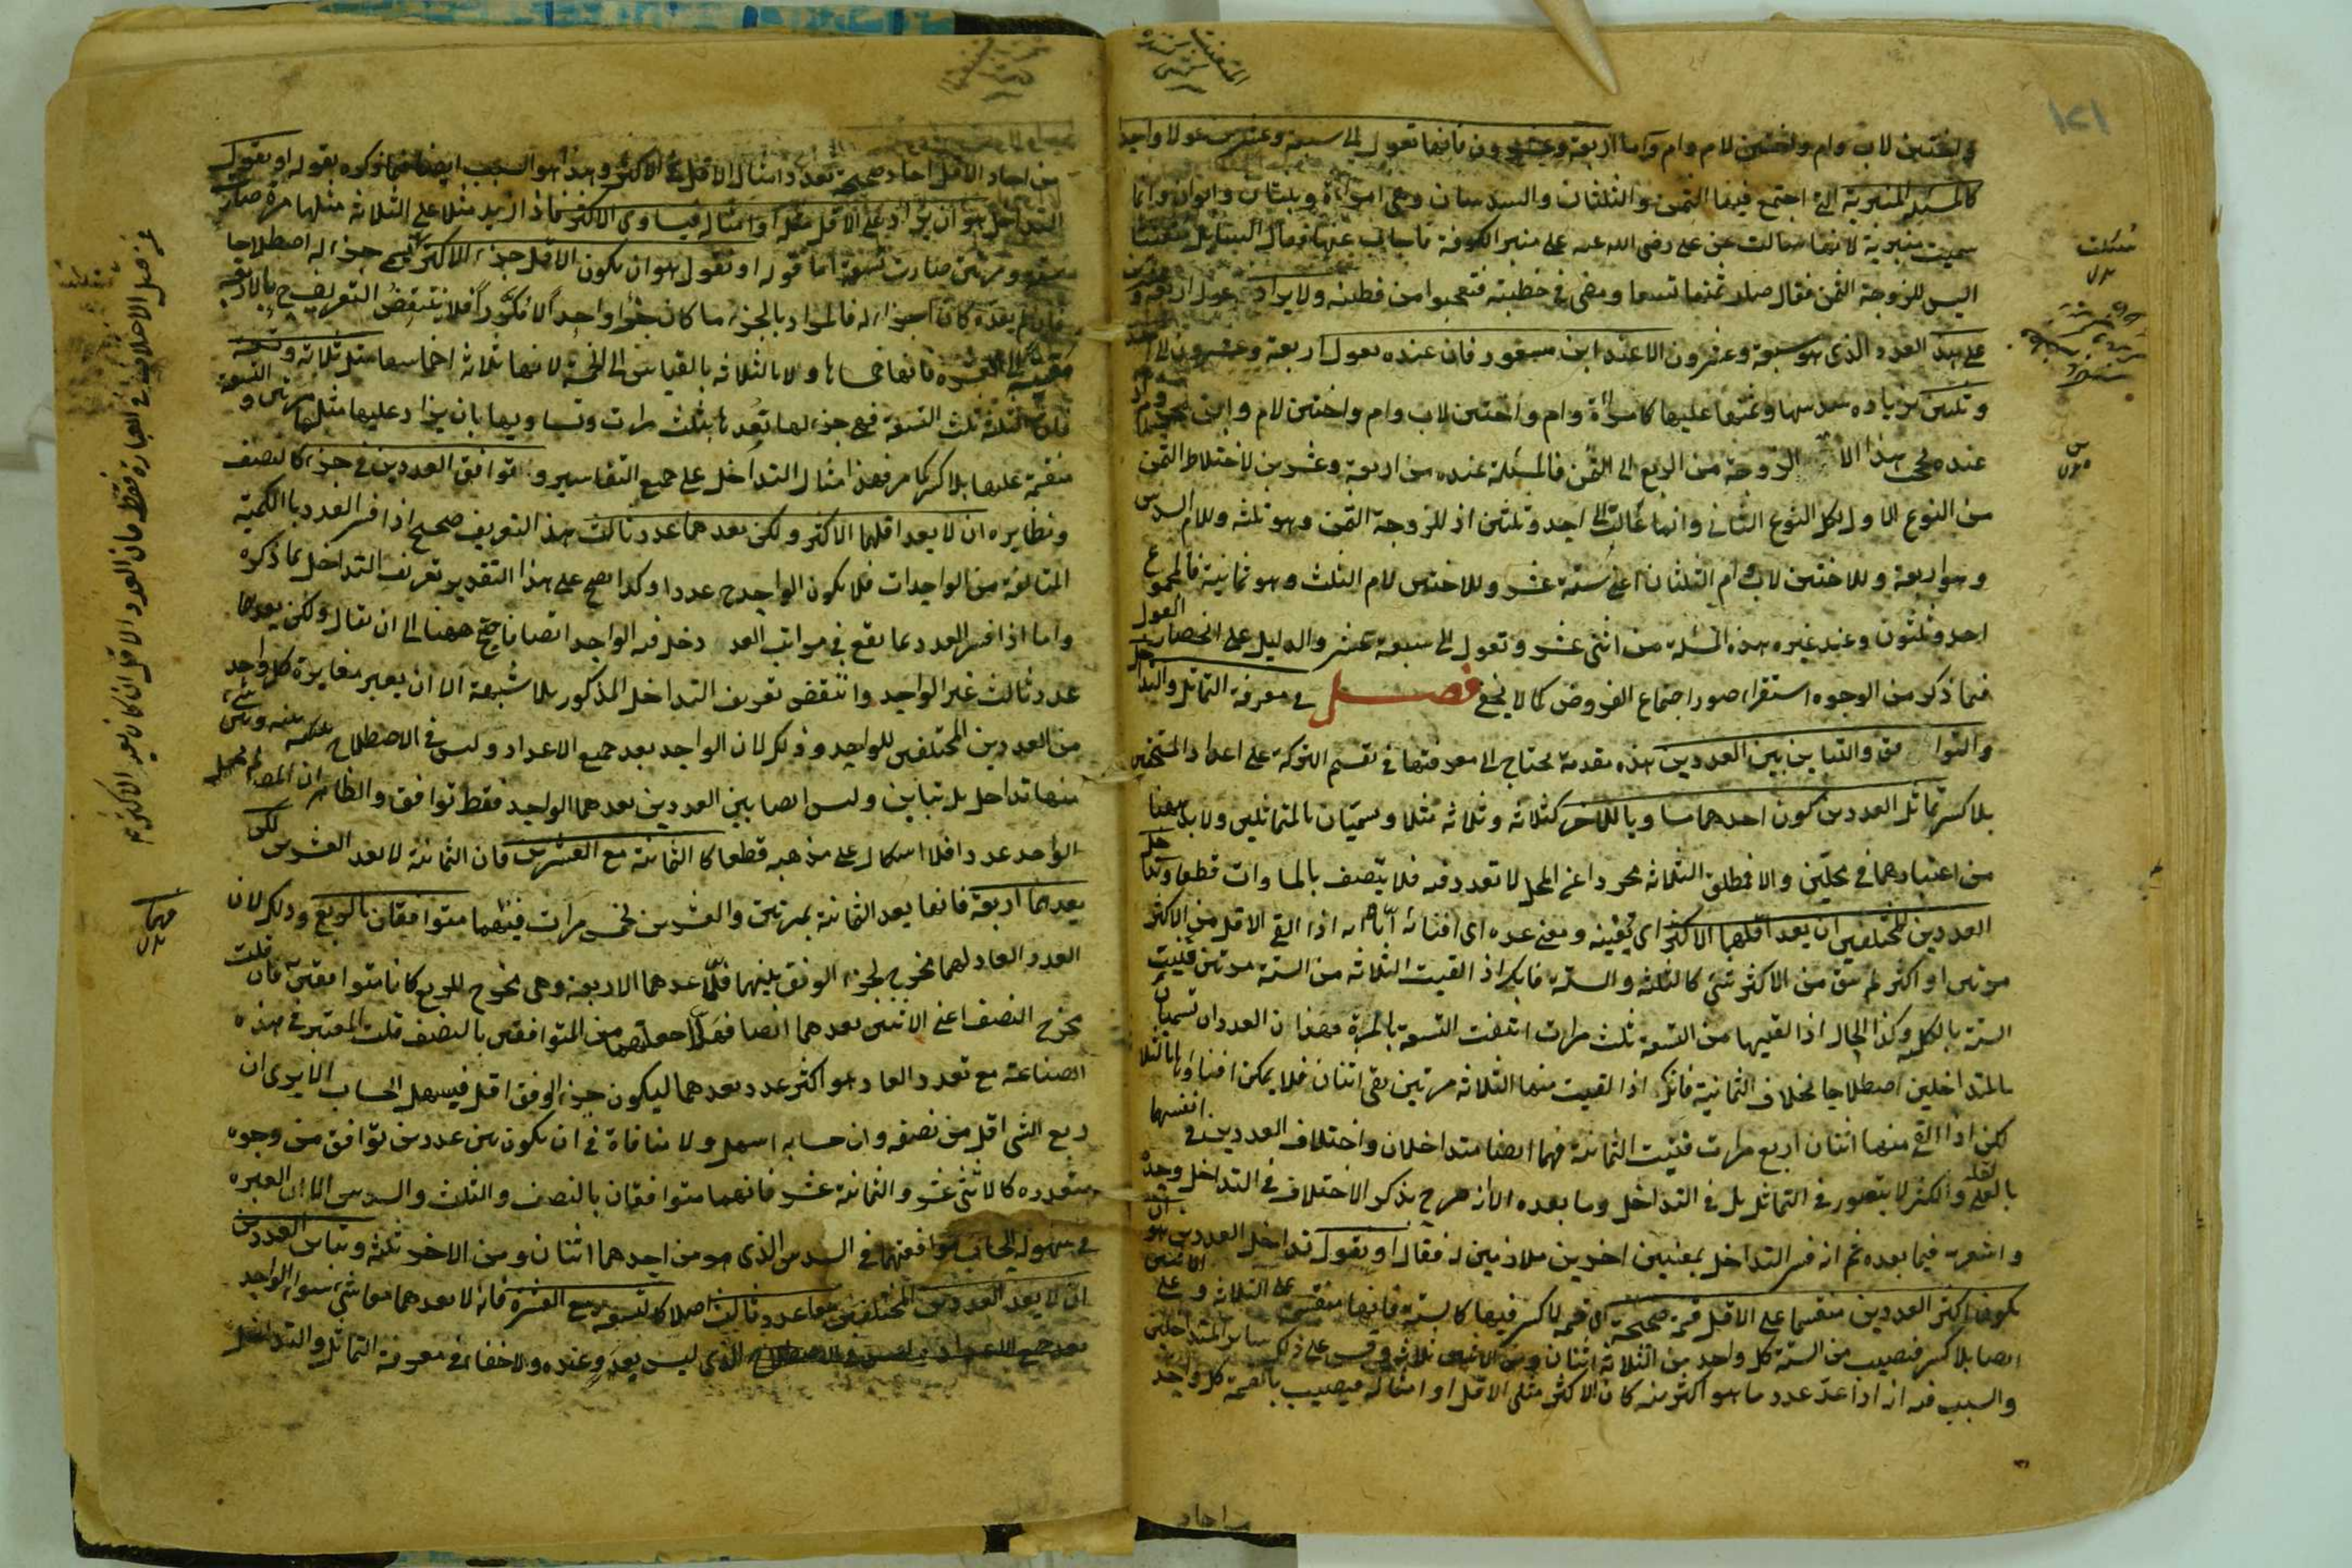 واختين لاب وام واختين لام وام واما اربعة وعشرون فانها تعول الى سبعة وعشرين عولا واحدا
كالمسئلة المنبرية التى اجتمع فيها الثمن والثلثان والسدسان وهى امراة وبنتان وابوان وانما
سميت منبرية لانها سالت عن على رضى الله عنه على منبر الكوفة فاجاب عنها فقال السائل متعنتا
اليس للزوجة الثمن فقال صار ثمنها تسعا ومضى فى خطبته فتعجبوا من فطنته ولا يزاد عول اربعة و
على هذا العدد الذى هو سبعة وعشرون الا عند ابن مسعود فان عنده تعول اربعة وعشرون الى احد
وثلثين بزيادة سدسها وثمنها عليها كامراة وام واختين لاب وام واختين لام وابن محروم
عنده يحجب هذا الابن الزوجة من الربع الى الثمن فالمسئلة عنده من اربعة وعشرين لاختلاط الثمن
من النوع الاول بكل النوع الثانى وانها عالت الى احد وثلثين اذ للزوجة الثمن وهو ثلثة وللام السدس
وهو اربعة وللاختين لاب وام الثلثان اعنى ستة عشر وللاختين لام الثلث وهو ثمانية فالمجموع
احد وثلثون وعند غيره هذه المسئلة من اثنى عشر وتعول الى سبعة عشر والدليل على انحصار العول
فيما ذكر من الوجوه استقراء صور اجتماع الفروض كما لا يخفى فصل فى معرفة التماثل والتداخل
والتوافق والتباين بين العددين هذه مقدمة يحتاج الى معرفتها فى تقسيم التركة على اعداد المستحقين
بلا كسر تماثل العددين كون احدهما مساويا للاخر كثلاثة وثلاثة مثلا ويسميان بالمتماثلين ولا بد ههنا
من اعتبارهما فى محلين والا فمطلق الثلاثة مجردا عن المحل لا تعدد فيه فلا يتصف بالمساوات قطعا وتداخل
العددين المختلفين ان يعد اقلهما الاكثر اى يفنيه ومعنى عده اى افنائه اياه انه اذا القى الاقل من الاكثر
مرتين او اكثر لم يبق من الاكثر شئ كالثلثة والستة فانك اذا القيت الثلاثة من الستة مرتين فنيت
الستة بالكلية وكذا الحال اذا القيتها من التسعة ثلث مرات انتفت التسعة بالمرة فهذان العددان يسميان
بالمتداخلين اصطلاحا بخلاف الثمانية فانك اذا القيت منها الثلاثة مرتين بقى اثنان فلا يمكن افناؤها بالثلاثة
لكن اذا القى منها اثنان اربع مرات فنيت الثمانية فهما ايضا متداخلان واختلاف العددين فى انفسهما
بالقلة والكثرة لا يتصور فى التماثل بل فى التداخل وما بعده الا انه صرح بذكر الاختلاف فى التداخل وحده
واشعر به فيما بعده ثم انه فسر التداخل بمعنيين اخرين ملازمين له فقال او نقول تداخل العددين هو ان
يكون اكثر العددين منقسما على الاقل قسمة صحيحة اى قسمة لا كسر فيها كالستة فانها منقسمة على الثلاثة وعلى الاثنين
ايضا بلا كسر فنصيب من الستة كل واحد من الثلاثة اثنان ومن الاثنين ثلاثة وقس على ذلك سائر المتداخلين
والسبب فيه انه اذا عد عدد ما هو اكثر منه كان الاكثر مثلى الاقل او امثاله فيصيب بالقسمة كل واحد
من احاد
من احاد الاقل احاد صحيحة بعدد امثال الاقل فى الاكثر وهذا هو السبب ايضا فيما ذكره بقوله او نقول
التداخل هو ان يزاد على الاقل مثله او امثاله فيساوى الاكثر فاذا زيد مثلا على الثلاثة مثلها مرة صارت
ستة ومرتين صارت تسعة اما قوله او نقول هو ان يكون الاقل جزء للاكثر جزء له اصطلاحا
فان لم يعده كان اجزاء له فالمراد بالجزء ما كان جزءا واحدا لا مكررا فلا ينتقض التعريف ح بالاربعة
مقيسة الى العشرة فانها خمساها ولا بالثلاثة بالقياس الى الخمسة لانها ثلاثة اخماسها مثل ثلاثة وتسعة
فان الثلثة ثلث التسعة فهى جزء لها تعدها ثلث مرات وتساويها بان يزاد عليها مثلها مرتين والتسعة
منقسمة عليها بلا كسر كما مر فهذا مثال التداخل على جميع التفاسير وتوافق العددين فى جزء كالنصف
ونظايره ان لا يعد اقلهما الاكثر ولكن يعدهما عدد ثالث هذا التعريف صحيح اذا فسر العدد بالكمية
المتالفة من الواحدات فلا يكون الواحد ح عددا وكذا يصح على هذا التقدير تعريف التداخل بما ذكره
واما اذا فسر العدد بما يقع فى مراتب العد دخل فيه الواحد ايضا فاحتيج ههنا الى ان يقال ولكن يعدهما
عدد ثالث غير الواحد وانتقض تعريف التداخل المذكور بلا شبهة الا ان يعتبر مغايرة كل واحد
من العددين المختلفين للواحد وذلك لان الواحد يعد جميع الاعداد وليس فى الاصطلاح
منها تداخل بل تباين وليس ايضا بين العددين يعدهما الواحد فقط توافق والظاهر ان المص لم يجعل
الواحد عددا فلا اشكال على مذهبه قطعا كالثمانية مع العشرين فان الثمانية لا تعد العشرين لكن
يعدهما اربعة فانها يعد الثمانية بمرتين والعشرين بخمس مرات فيهما متوافقان بالربع وذلك لان
العدد العاد لهما مخرج لجزء الوفق بينهما فلما عدهما الاربعة وهى مخرج للربع كانا متوافقين فان قلت
مخرج النصف اعنى الاثنين يعدهما ايضا فهلا جعلتهما من المتوافقين بالنصف قلت المعتبر فى هذه
الصناعة مع تعدد العاد هو اكثر عدد يعدهما ليكون جزء الوفق اقل فيسهل الحساب الا يرى ان
ربع الشئ اقل من نصفه وان حسابه اسهل ولا منافاة فى ان يكون بين عددين توافق من وجوه
متعددة كالاثنى عشر والثمانية عشر فانهما متوافقان بالنصف والثلث والسدس الا ان العبرة
فى سهولة الحساب بتوافقهما فى السدس الذى هو من احدهما اثنان ومن الاخر ثلثة وتباين العددين
ان لا يعد العددين المختلفين معا عدد ثالث اصلا كالتسعة مع العشرة فانه لا يعدهما معا شئ سوى الواحد
الذى ليس بعدد عنده ولا خفاء فى معرفة التماثل والتداخل